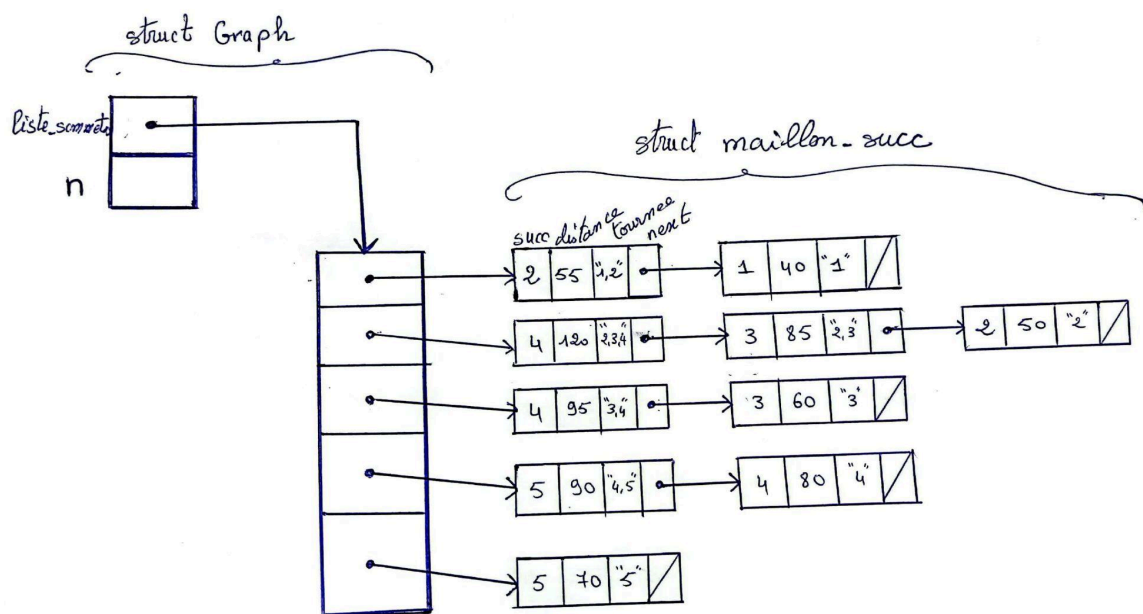 struct Graph
liste_sommets
n
struct maillon_succ
succ distance tournee next
2 55 "1,2" 1 40 "1"
4 120 "2,3,4" 3 85 "2,3" 2 50 "2"
4 95 "3,4" 3 60 "3"
5 90 "4,5" 4 80 "4"
5 70 "5"